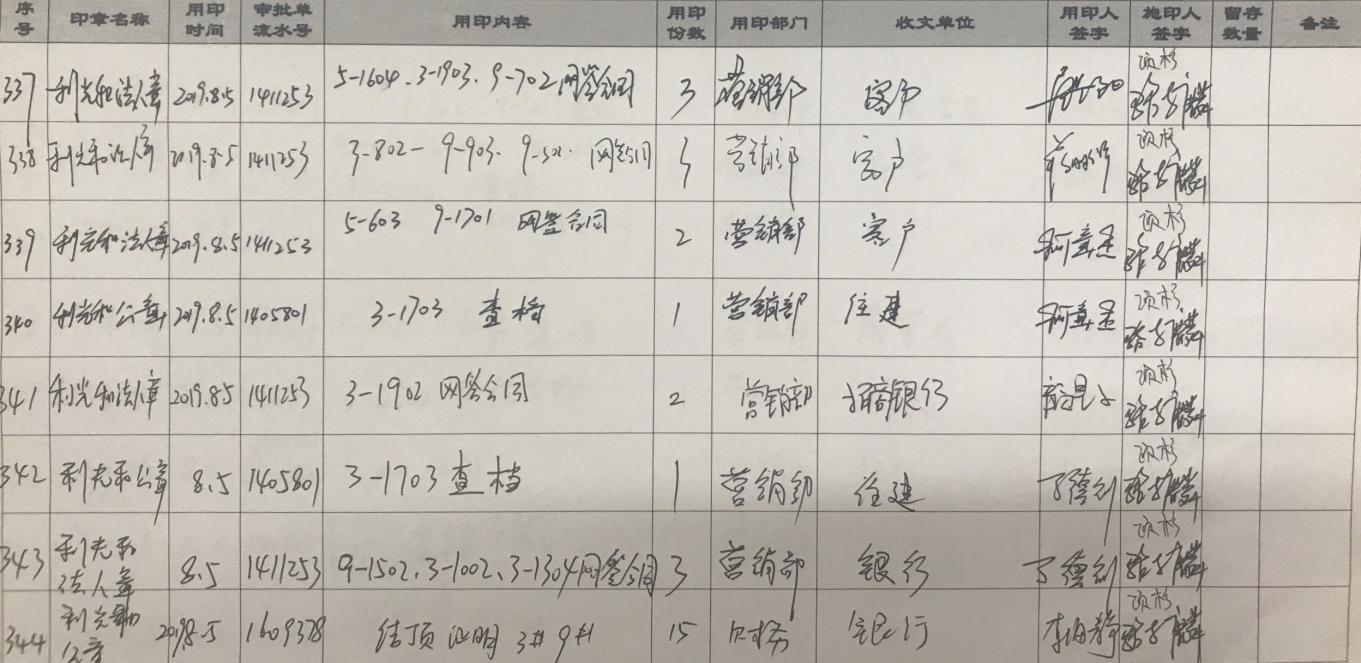 序号 印章名称 用印时间 审批单流水号 用印内容 用印份数 用印部门 收文单位 用印人签字 施印人签字 留存数量 备注
337 利光和法人章 2019.8.5 1411253 5-1604、3-1903、9-702网签合同 3 营销部 客户
338 利光和法人章 2019.8.5 1411253 3-802- 9-903. 9-502. 网签合同 3 营销部 客户
339 利光和法人章 2019.8.5 1411253 5-603 9-1701 网签合同 2 营销部 客户
340 利光和公章 2019.8.5 1405801 3-1703 查档 1 营销部 住建
341 利光和法人章 2019.8.5 1411253 3-1902 网签合同 2 营销部 招商银行
342 利光和公章 8.5 1405801 3-1703 查档 1 营销部 住建 丁德利
343 利光和法人章 8.5 1411253 9-1502、3-1002、3-1304网签合同 3 营销部 银行 丁德利
344 利光和公章 2019.8.5 1609378 结顶证明 3# 9# 15 财务 银行